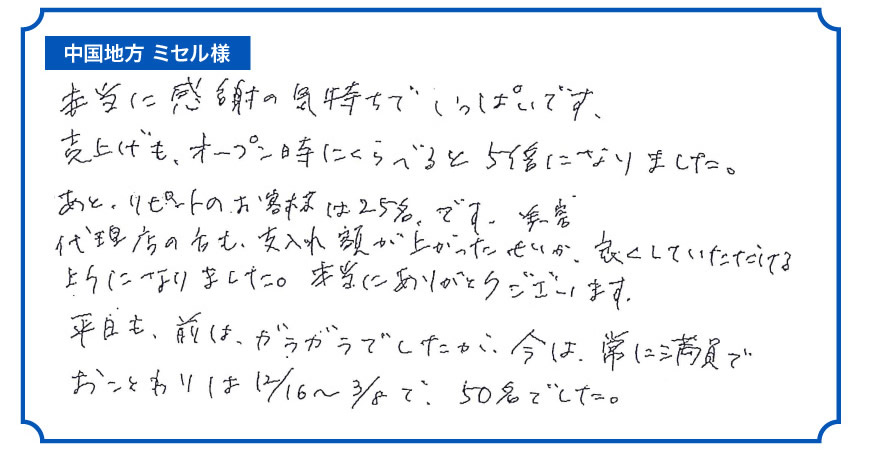 中国地方 ミセル様
本当に感謝の気持ちでいっぱいです、
売上げも、オープン時にくらべると5倍になりました。
あと、リピートのお客様は25名、です。
代理店の方も、支入れ額が上がったせいか、良くしていただける
ようになりました。本当にありがとうございます.
平日も、前は、ガラガラでしたが、今は、常に満員で
おことわりは12/16〜3/8で、50名でした。